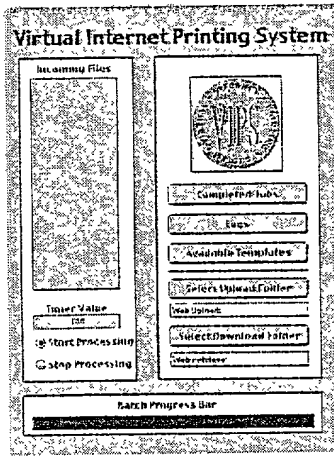 Virtual Internet Printing System
Incoming Files
VIPS
Completed Jobs
Logs
Available Templates
Select Upload Folder
Web Uploads
Select Download Folder
Web retrieve
Timer Value
Start Processing
Stop Processing
Batch Progress Bar